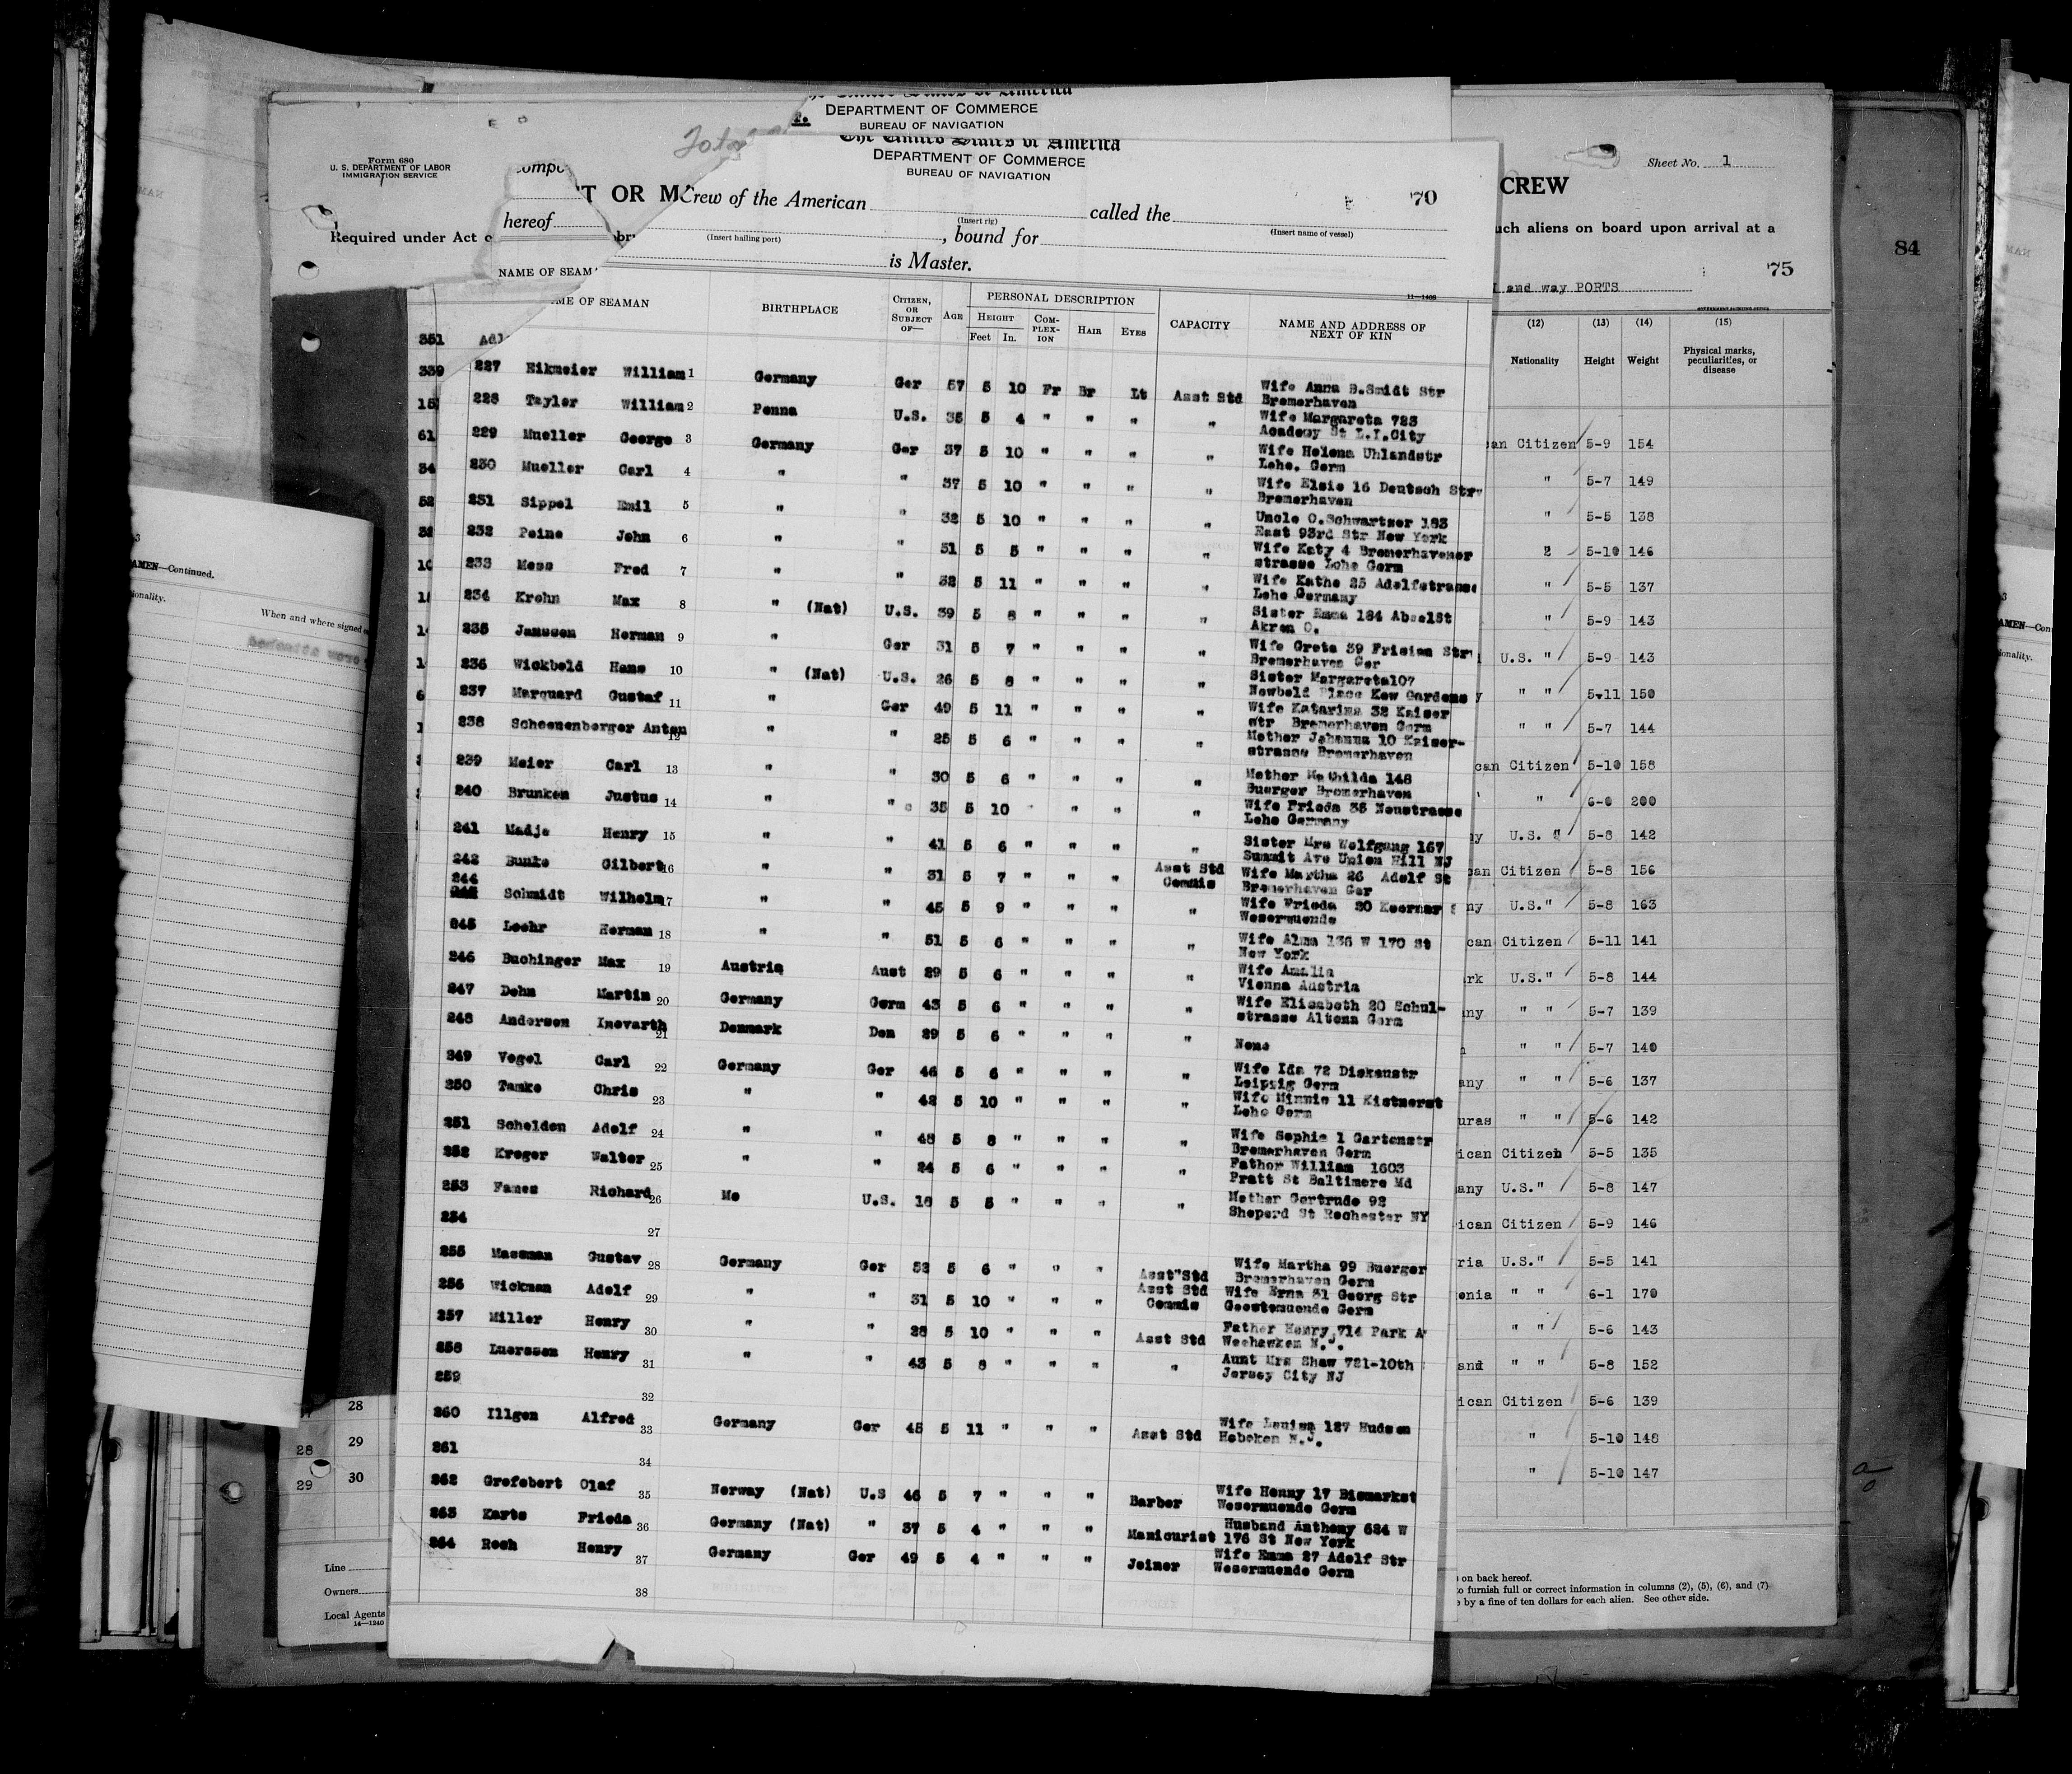 Form 680
U. S. DEPARTMENT OF LABOR
IMMIGRATION SERVICE
Required under Act
DEPARTMENT OF COMMERCE
BUREAU OF NAVIGATION
The United States of America
DEPARTMENT OF COMMERCE
BUREAU OF NAVIGATION
T OR M
Crew of the American called the 70
(Insert rig) (Insert name of vessel)
hereof
(Insert hailing port) , bound for
is Master.
Sheet No. 1
CREW
uch aliens on board upon arrival at a
75
and way PORTS
84
NAME OF SEAM
ME OF SEAMAN BIRTHPLACE CITIZEN, OR SUBJECT OF— AGE PERSONAL DESCRIPTION CAPACITY NAME AND ADDRESS OF NEXT OF KIN
HEIGHT COM-PLEX-ION HAIR EYES
Feet In.
11—1408
351
227 Eikmeier William 1 Germany Ger 57 5 10 Fr Br Lt Asst Std Wife Anna B.Smidt Str
Bremerhaven
228 Tayler William 2 Penna U.S. 35 5 4 " " " " Wife Margareta 723
Academy St L.I.City
229 Mueller George 3 Germany Ger 37 5 10 " " " " Wife Helena Uhlandstr
Lehe. Germ
230 Mueller Carl 4 " " 37 5 10 " " " " Wife Elsie 16 Deutsch Str
Bremerhaven
231 Sippel Emil 5 " " 32 5 10 " " " " Uncle O.Schwartzer 183
East 93rd Str New York
232 Peine John 6 " " 51 5 5 " " " " Wife Katy 4 Bremerhavener
strasse Lehe Germ
233 Mess Fred 7 " " 32 5 11 " " " " Wife Kathe 25 Adolfstrasse
Lehe Germany
234 Krohn Max 8 " (Nat) U.S. 39 5 8 " " " " Sister Emma 184 AbselSt
Akron O.
235 Janssen Herman 9 " Ger 31 5 7 " " " " Wife Greta 39 Frisian Str
Bremerhaven Ger
236 Wickbold Hans 10 " (Nat) U.S. 26 5 8 " " " " Sister Margareta107
Newbold Place Kew Gardens
237 Marquard Gustaf 11 " Ger 49 5 11 " " " " Wife Katarina 32 Kaiser
str Bremerhaven Germ
238 Schoenenberger Anton 12 " " 25 5 6 " " " " Mother Johanna 10 Kaiser-
strasse Bremerhaven
239 Meier Carl 13 " " 30 5 6 " " " " Mother Mathilda 148
Buerger Bremerhaven
240 Brunken Justus 14 " " 35 5 10 " " " " Wife Frieda 35 Neustrasse
Lehe Germany
241 Madje Henry 15 " " 41 5 6 " " " " Sister Mrs Wolfgang 167
Summit Ave Union Hill NJ
242 Bunke Gilbert 16 " " 31 5 7 " " " Asst Std Commis Wife Martha 26 Adolf St
Bremerhaven Ger
244 Schmidt Wilhelm 17 " " 45 5 9 " " " " Wife Frieda 20 Koerner
Wesermuende
245 Loehr Herman 18 " " 51 5 6 " " " " Wife Alma 136 W 170 St
New York
246 Buchinger Max 19 Austria Aust 29 5 6 " " " " Wife Amalia
Vienna Austria
247 Dehn Martin 20 Germany Germ 43 5 6 " " " " Wife Elisabeth 20 Schul-
strasse Altona Germ
248 Andersen Inevarth 21 Denmark Den 29 5 6 " " " " None
249 Vogel Carl 22 Germany Ger 46 5 6 " " " " Wife Ida 72 Diskaustr
Leipzig Germ
250 Tamke Chris 23 " " 42 5 10 " " " " Wife Minnie 11 Kistnerst
Lehe Germ
251 Schelden Adolf 24 " " 48 5 8 " " " " Wife Sophie 1 Gartenstr
Bremerhaven Germ
252 Kroger Walter 25 " " 24 5 6 " " " " Father William 1603
Pratt St Baltimore Md
253 Fames Richard 26 Mo U.S. 18 5 5 " " " " Mother Gertrude 92
Sheperd St Rochester NY
254 27
255 Massman Gustav 28 Germany Ger 53 5 6 " " " Asst Std Wife Martha 99 Buerger
Bremerhaven Germ
256 Wickman Adolf 29 " " 31 5 10 " " " Asst Std Commis Wife Erna 31 Georg Str
Geestemuende Germ
257 Miller Henry 30 " " 28 5 10 " " " Asst Std Father Henry 714 Park A
Weehawken N.J.
258 Luerssen Henry 31 " " 43 5 8 " " " " Aunt Mrs Shaw 721-10th
Jersey City NJ
259 32
260 Illgen Alfred 33 Germany Ger 45 5 11 " " " Asst Std Wife Louisa 127 Hudson
Hoboken N.J.
261 34
262 Grefebert Olaf 35 Norway (Nat) U.S 46 5 7 " " " Barber Wife Henny 17 Bismarkst
Wesermuende Germ
263 Karts Frieda 36 Germany (Nat) " 37 5 4 " " " Manicurist Husband Anthony 634 W
176 St New York
264 Rech Henry 37 Germany Ger 49 5 4 " " " Joiner Wife Emma 27 Adolf Str
Wesermuende Germ
38
(12) (13) (14) (15)
Nationality Height Weight Physical marks, peculiarities, or disease
an Citizen 5-9 154
" 5-7 149
" 5-5 138
2 5-10 146
" 5-5 137
" 5-9 143
U.S. " 5-9 143
" " 5-11 150
" " 5-7 144
can Citizen 5-10 158
" 6-0 200
U.S. " 5-8 142
can Citizen 5-8 156
ny U.S." 5-8 163
can Citizen 5-11 141
rk U.S." 5-8 144
ny " " 5-7 139
" " 5-7 140
any " " 5-6 137
uras " " 5-6 142
ican Citizen 5-5 135
any U.S." 5-8 147
ican Citizen 5-9 146
ria U.S." 5-5 141
enia " " 6-1 170
" " 5-6 143
and " " 5-8 152
ican Citizen 5-6 139
" 5-10 148
" 5-10 147
on back hereof.
to furnish full or correct information in columns (2), (5), (6), and (7)
by a fine of ten dollars for each alien. See other side.
AMEN—Continued.
ionality.
When and where signed
28
28 29
29 30
Line
Owners
Local Agents
14—1240